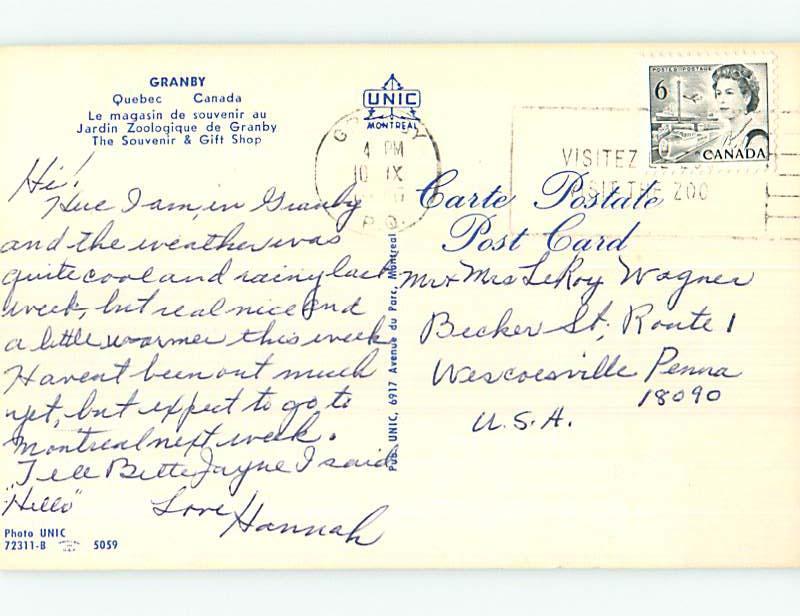 GRANBY
Quebec Canada
Le magasin de souvenir au
Jardin Zoologique de Granby
The Souvenir & Gift Shop
UNIC
MONTREAL
4 PM
10 IX
P.Q.
VISITEZ
VISIT THE ZOO
POSTES POSTAGE
6
CANADA
Carte Postale
Post Card
Hi!
Here I am, in Granby
and the weather was
quite cool and rainy last
week, but real nice and
a little warmer this week.
Havent been out much
yet, but expect to go to
Montreal next week.
Tell Bette Jayne I said
"Hello"
Love
Hannah
Pub. UNIC, 6917 Avenue du Parc, Montreal
Mr + Mrs LeRoy Wagner
Becker St, Route 1
Wescoesville Penna
18090
U.S.A.
Photo UNIC
72311-B 5059